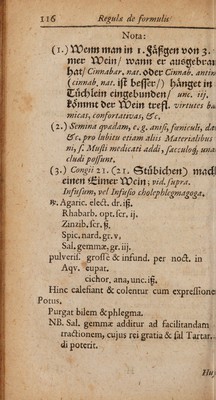 116 Regulæ de formulis
Nota:
(1.) Wenn man in 1. Fäßgen von 3.
mer Wein / wann er ausgebrau
hat / Cinnabar. nat. oder Cinnab. antim
(cinnab. nat. ist besser /) hänget in
Tüchlein eingebunden / unc. iij.
kömmt der Wein trefl. virtutes ba
micas, confortativas, &c.
(2.) Semina quædam, e.g. anisi, fœniculi, da
&c. pro lubitu etiam aliis Materialibus
ni, s. Musti medicati addi, sacculoq, una
cludi possunt.
(3.) Congii 21. (21. Stübichen) mach
einen Eimer Wein; vid. supra.
Infusum, vel Infusio cholephlegmagoga.
℞. Agaric. elect. dr. iß.
Rhabarb. opt. scr. ij.
Zinzib. scr. ß.
Spic. nard. gr. v.
Sal. gemmæ, gr. iij.
pulveris. grossè & infund. per noct. in
Aqv. eupat.
cichor. ana, unc. iß.
Hinc calefiant & colentur cum expressione
Potus.
Purgat bilem & phlegma.
NB. Sal. gemmæ additur ad facilitandam
tractionem, cujus rei gratia & sal Tartar.
di poterit.